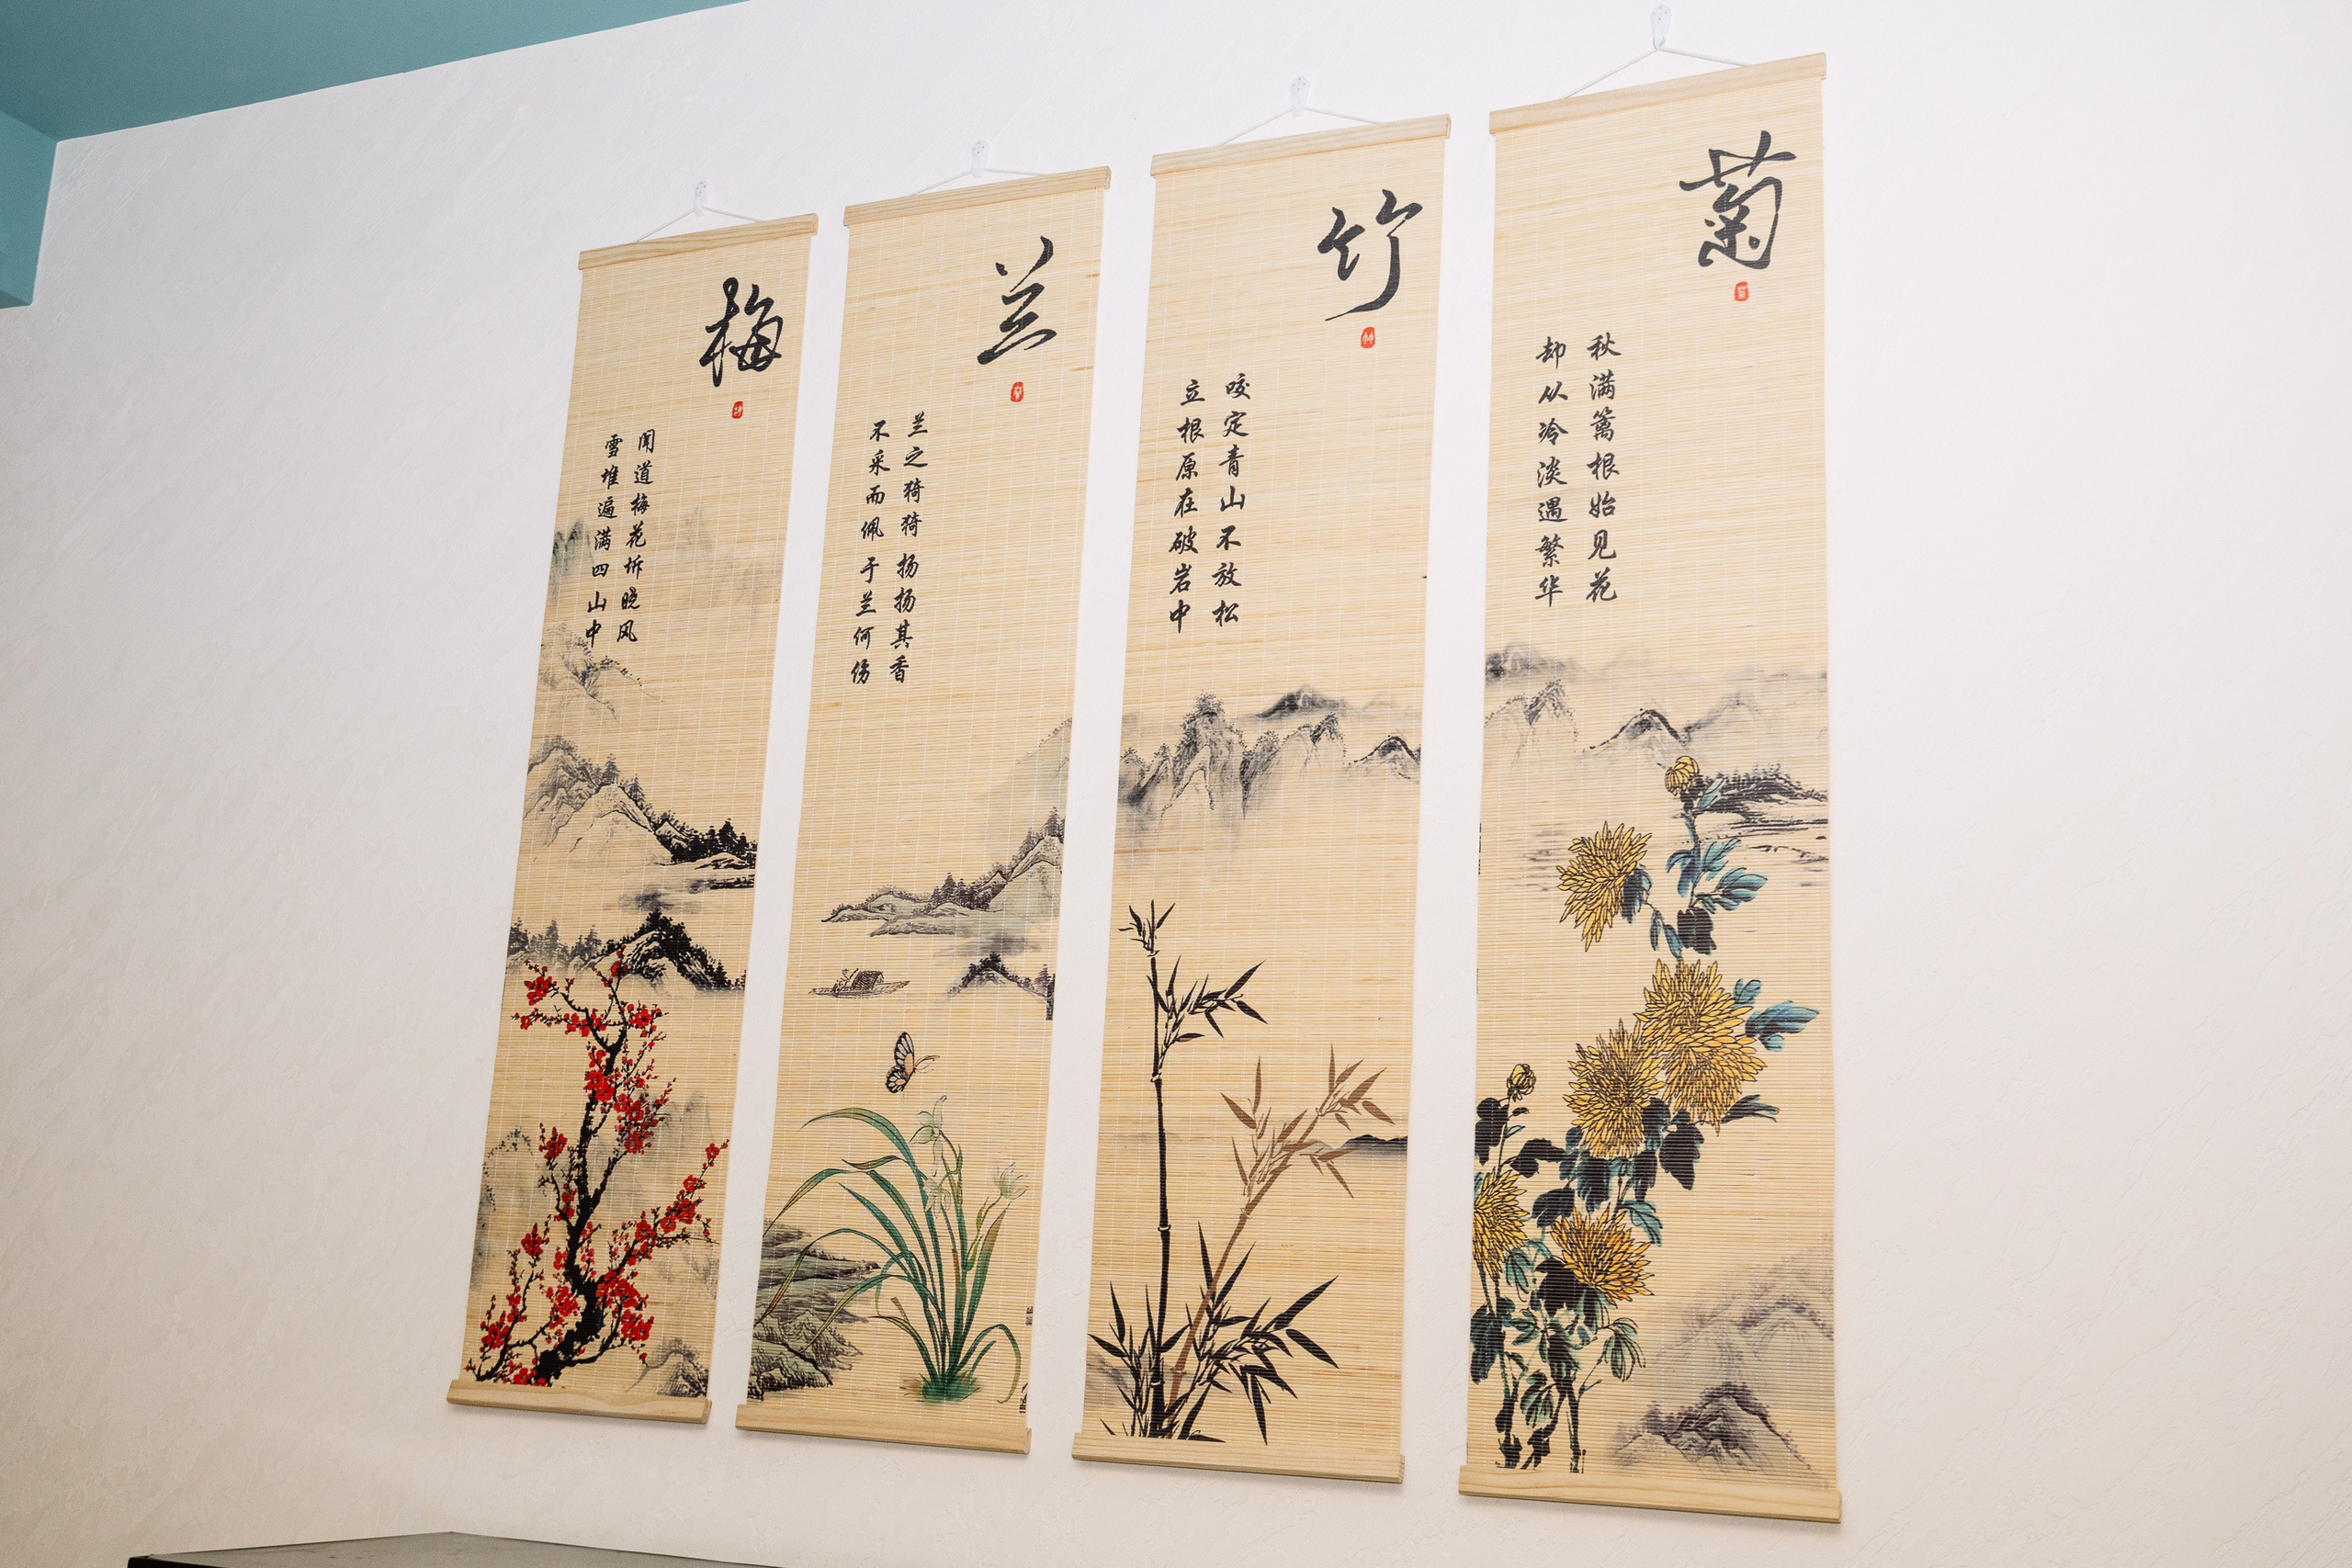 梅
闻道梅花坼晓风
雪堆遍满四山中
兰
兰之猗猗扬扬其香
不采而佩于兰何伤
竹
咬定青山不放松
立根原在破岩中
菊
秋满篱根始见花
却从冷淡遇繁华